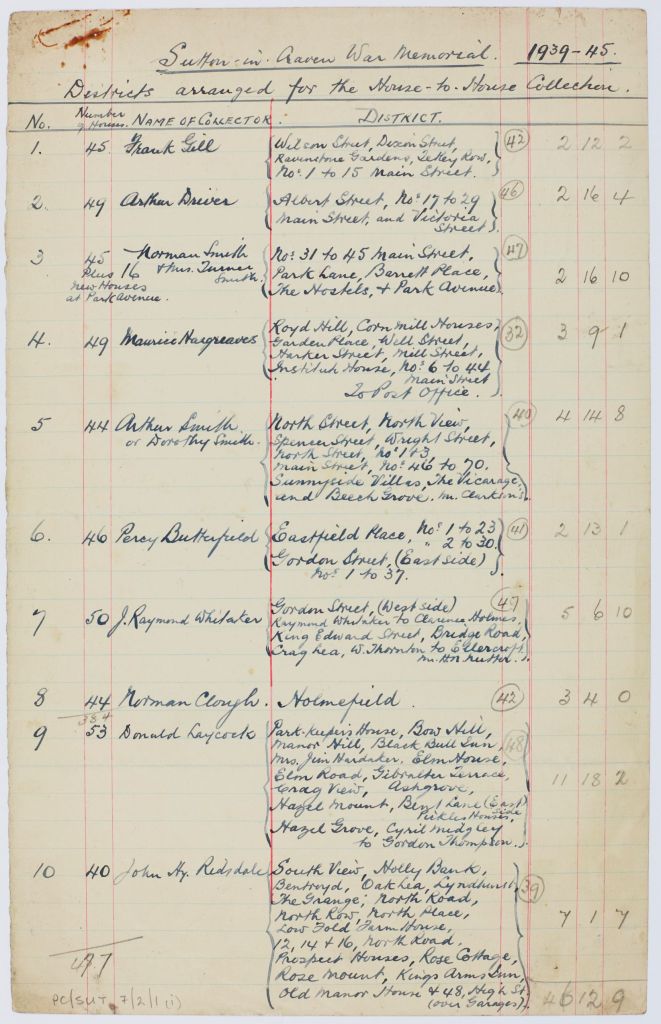 Sutton-in-Craven War Memorial. 1939-45.
Districts arranged for the House-to-House Collection.
No. Number of Houses. NAME OF COLLECTOR. DISTRICT.
1. 45. Frank Gill Wilson Street, Dixon Street, 42 2 12 2
Ravenstone Gardens, Row,
Nos. 1 to 15 Main Street.
2. 49 Arthur Driver Albert Street, Nos. 17 to 29 46 2 16 4
Main Street, and Victoria
Street.
3 45 Norman Smith Nos. 31 to 45 Main Street, 47
Plus 16 & Mrs. Turner Park Lane, Barrett Place, 2 16 10
New Houses Smith. The Hostels, & Park Avenue
at Park Avenue.
4. 49 Maurice Hargreaves Royd Hill, Corn Mill Houses, 32 3 9 1
Garden Place, Well Street,
Harker Street, Mill Street,
Institute House, Nos. 6 to 44
Main Street
To Post Office.
5 44 Arthur Smith. North Street, North View, 40 4 14 8
or Dorothy Smith. Spencer Street, Wright Street,
North Street, Nos 1 & 3
Main Street, Nos. 46 to 70.
Sunnyside Villas, The Vicarage,
and Beech Grove. Mr. Clarkson's.
6. 46 Percy Butterfield Eastfield Place, Nos. 1 to 23 41 2 13 1
" 2 to 30.
Gordon Street, (East side)
Nos. 1 to 37.
7 50 J. Raymond Whitaker Gordon Street, (West side) 47 5 6 10
Raymond Whitaker to Clarence Holmes,
King Edward Street, Bridge Road,
Craghea, W. Thornton to Ellercroft
Mr. Nutter.
8 44 Norman Clough. Holmefield. 42 3 4 0
384
9 53 Donald Laycock Park-keeper's House, Bow Hill, 48 11 18 2
Manor Hill, Black Bull Inn,
Mrs. Jim Hardaker. Elm House,
Elm Road, Gibralter Terrace,
Crag View, Ashgrove,
Hazel Mount, Bent Lane (East
Side
Pickles Houses,
Hazel Grove, Cyril Midgley
to Gordon Thompson.
10 40 John Hy. Redsdale South View, Holly Bank, 39 7 1 7
Bentroyd, Oaklea, Lyndhurst,
The Grange, North Road,
North Row, North Place,
Low Fold Farm House,
12, 14 & 16, North Road.
Prospect Houses, Rose Cottage,
Rose Mount, Kings Arms Inn,
Old Manor House & 48, High St.
(over Garages).
497
46 12 9
PC/SUT 7/2/1 (i)